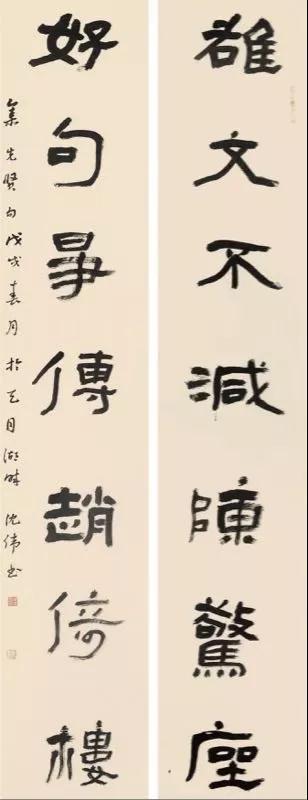 雄文不減陳驚座
好句爭傳趙倚樓
集先贤句戊戌春月於天目湖畔沈伟书